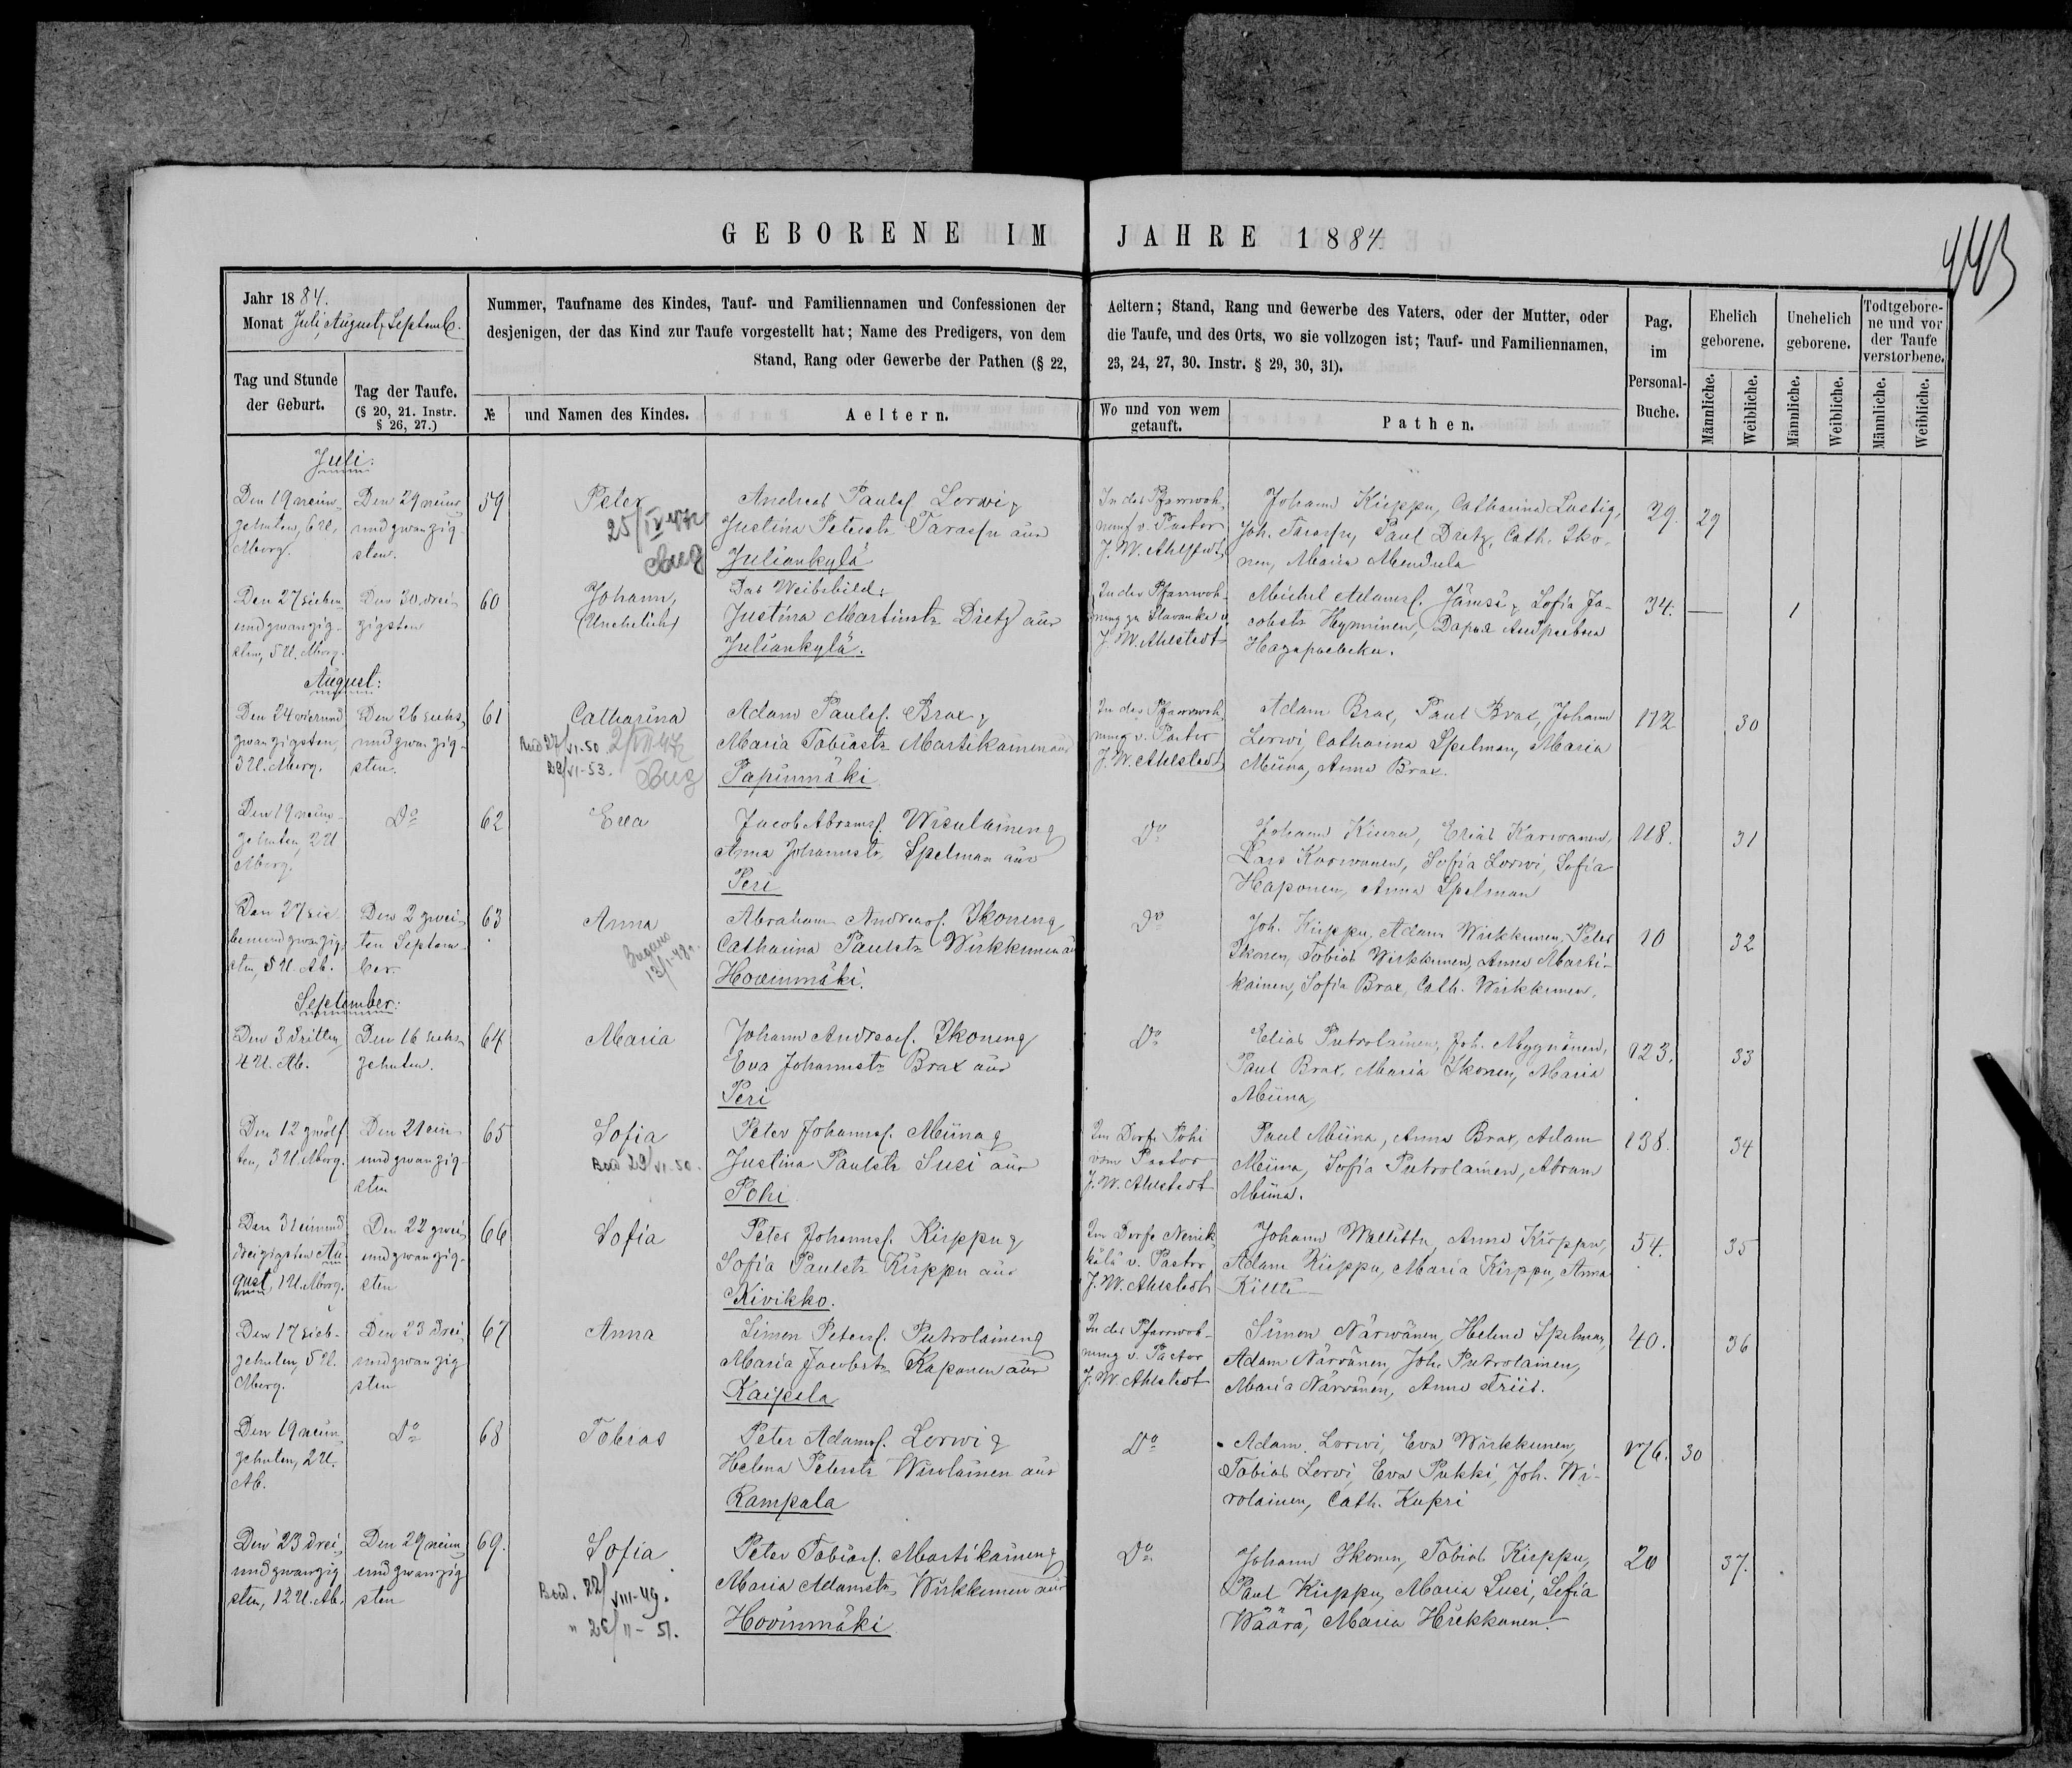 GEBORENE IM JAHRE 1884.
443
Jahr 1884.
Monat Juli, August, Septemb.
Nummer, Taufname des Kindes, Tauf- und Familiennamen und Confessionen der Aeltern; Stand, Rang und Gewerbe des Vaters, oder der Mutter, oder
desjenigen, der das Kind zur Taufe vorgestellt hat; Name des Predigers, von dem die Taufe, und des Orts, wo sie vollzogen ist; Tauf- und Familiennamen,
Stand, Rang oder Gewerbe der Pathen (§ 22, 23, 24, 27, 30. Instr. § 29, 30, 31).
Tag und Stunde
der Geburt.
Tag der Taufe.
(§ 20, 21. Instr.
§ 26, 27.)
№
und Namen des Kindes.
Aeltern.
Wo und von wem
getauft.
Pathen.
Pag.
im
Personal-
Buche.
Ehelich
geborene.
Unehelich
geborene.
Todtgebore-
ne und vor
der Taufe
verstorbene.
Männliche.
Weibliche.
Männliche.
Weibliche.
Männliche.
Weibliche.
Juli:
Den 19 neun-
zehnten, 6 U.
Morg.
Den 29 neun
und zwanzig-
sten.
59
Peter
Andreas Paulsf. Lorwi &
Justina Peterstr. Parassu aus
Juliankylä
In der Pfarrwoh-
nung v. Pastor
J. W. Ahlstedt
Johann Kirppu, Catharina Lustig,
Joh. Parassu, Paul Dietz, Cath. Iko-
nen, Maria Mendula
29.
29
Den 27 sieben
und zwanzig-
sten, 5 U. Morg.
Den 30. drei-
zigsten
60
Johann,
(Unehelich)
Das Weibsbild
Justina Martinstr. Dietz aus
Juliankylä.
In der Pfarrwoh-
nung zu Slavanka v.
J. W. Ahlstedt
Michel Adamsf. Jämsä, Sofia Ja-
cobstr. Hyvninen, Дарья Андреевна
34.
1
August:
Den 24 vierund
zwanzigsten,
3 U. Morg.
Den 26 sechs
und zwanzig-
sten.
61
Catharina
Adam Paulsf. Brax &
Maria Tobiastr. Martikainen aus
Papinmäki
In der Pfarrwoh-
nung v. Pastor
J. W. Ahlstedt
Adam Brax, Paul Brax, Johann
Lorwi, Catharina Spelman, Maria
Miina, Anna Brax.
112
30
Den 19 neun-
zehnten, 2 U
Morg.
Do
62
Eva
Jacob Abramsf. Wirolainen &
Anna Johannstr. Spelman aus
Peri
Do
Johann Kiuru, Elias Karwanen,
Lars Karwanen, Sofia Lorwi, Sofia
Haponen, Anna Spelman
118.
31
Den 27 sie-
benundzwanzig-
sten, 5 U. Ab.
Den 2 zwei-
ten Septem-
ber.
63
Anna
Abraham Andreasf. Ikonen &
Catharina Paulstr. Wirkkunen aus
Hovinmäki.
Do
Joh. Kirppu, Adam Wirkkunen, Peter
Ikonen, Tobias Wirkkunen, Anna Marti-
kainen, Sofia Brax, Cath. Wirkkunen.
10
32
September:
Den 3 dritten
4 U. Ab.
Den 16 sechs-
zehnten.
64
Maria
Johann Andreasf. Ikonen &
Eva Johannstr. Brax aus
Peri
Do
Elias Putrolainen, Joh. Myynänen,
Paul Brax, Maria Ikonen, Maria
Miina,
123.
33
Den 12 zwölf-
ten, 3 U. Morg.
Den 21 ein-
und zwanzig-
sten
65
Sofia
Peter Johannsf. Miina &
Justina Paulstr. Susi aus
Pohi
Im Dorfe Pohi
vom Pastor
J. W. Ahlstedt
Paul Miina, Anna Brax, Adam
Miina, Sofia Putrolainen, Abram
Miina.
138.
34
Den 31 einund
dreizigsten Au-
gust, 1 U. Morg.
Den 22 zwei
und zwanzig-
sten
66
Sofia
Peter Johannsf. Kirppu &
Sofia Paulstr. Kirppu aus
Kivikko.
Im Dorfe
v. Pastor
J. W. Ahlstedt
Johann Wallittu, Anna Kirppu,
Adam Kirppu, Maria Kirppu, Anna
54.
35
Den 17 sieb-
zehnten, 5 U.
Morg.
Den 23 drei
und zwanzig
sten
67
Anna
Simon Petersf. Putrolainen &
Maria Jacobstr. Kaponen aus
Kaipela
In der Pfarrwoh-
nung v. Pastor
J. W. Ahlstedt
Simon Närwänen, Helena Spelman,
Adam Närwänen, Joh. Putrolainen,
Maria Närwänen, Anna Friis.
40.
36
Den 19 neun
zehnten, 2 U.
Ab.
Do
68
Tobias
Peter Adamsf. Lorwi &
Helena Peterstr. Wirolainen aus
Rampala
Do
Adam Lorwi, Eva Wirkkunen,
Tobias Lorwi, Eva Pukki, Joh. Wi-
rolainen, Cath. Kupri
176.
30
Den 23 drei
und zwanzig
sten, 12 U. Ab.
Den 29 neun
und zwanzig
sten
69.
Sofia
Peter Tobiasf. Martikainen &
Maria Adamstr. Wirkkunen aus
Hovinmäki
Do
Johann Ikonen, Tobias Kirppu,
Paul Kirppu, Maria Susi, Sofia
Wäärä, Maria Hirkkanen.
20
37.